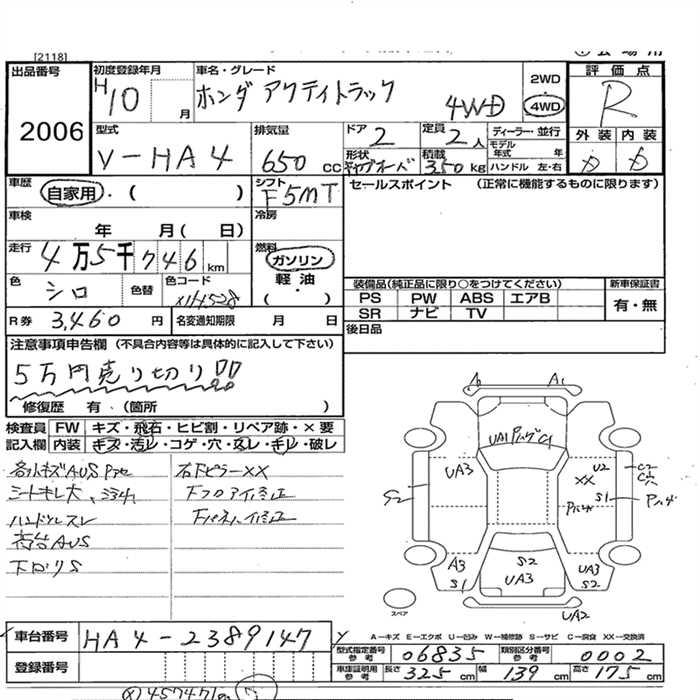 [2118]
出品番号 初度登録年月 車名・グレード 2WD 評価点
2006 H10 月 ホンダ アクティトラック 4WD 4WD R
型式 排気量 ドア 定員 ディーラー・並行 外装 内装
V-HA4 650 cc 2 2人 モデル年式 年
形状 積載 ハンドル 左・右
キャブオーバ 350 kg
車歴 自家用・( ) シフト F5MT セールスポイント (正常に機能するものに限ります)
車検 年 月( 日) 冷房
走行 4万5千746km 燃料 ガソリン
軽油
・( )
色 シロ 色替 色コード 装備品(純正品に限り○をつけてください) 新車保証書
PS PW ABS エアB 有・無
SR ナビ TV
R券 3,460円 名変通知期限 月 日 後日品
注意事項申告欄(不具合内容等は具体的に記入して下さい)
5万円売り切り!!
修復歴 有・(箇所 )
検査員 FW キズ・飛石・ヒビ割・リペア跡・×要
記入欄 内装 キズ・汚レ・コゲ・穴・スレ・キレ・破レ
シートキレ大、
ハンドルスレ
荷台AUS
下回りS
右FピラーXX
下フロア修正
A1
UA1
UA3 U2
XX
S2 S1 C2
C穴
A3 S2 UA3
S1 UA3 S2
UA2
スペア
A-キズ E-エクボ U-凹み W-補修跡 S-サビ C-腐食 XX-交換済
車台番号 HA4-2389147
登録番号
型式指定番号 参考 06835 類別区分番号 参考 0002
車庫証明用 参考 長さ 325 cm 幅 139 cm 高さ 175 cm